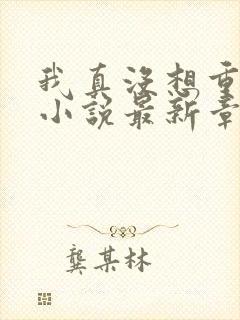 我真没想重
小说最新章
龚某林